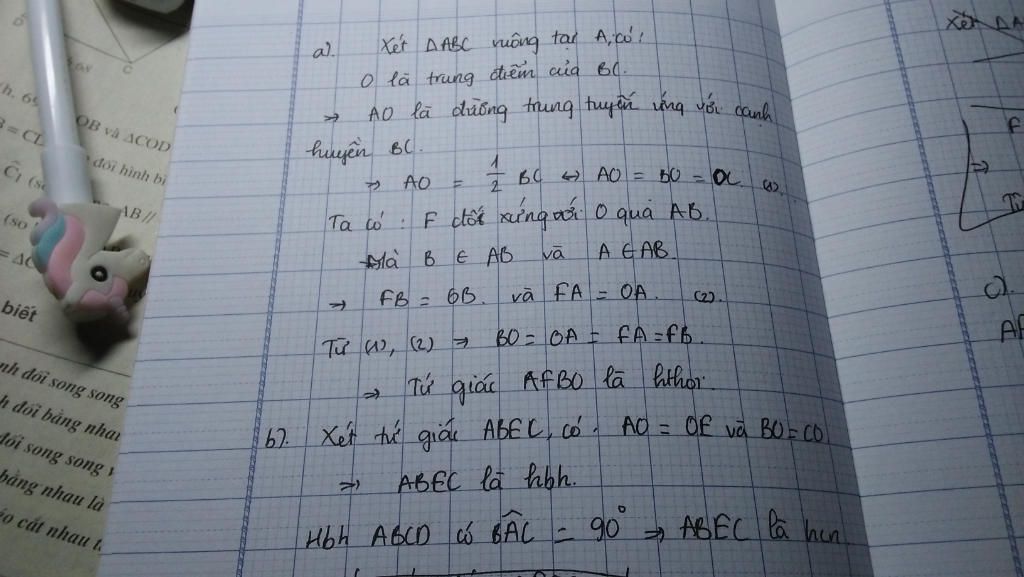 a). Xét ΔABC vuông tại A, có:
O là trung điểm của BC.
→ AO là đường trung tuyến ứng với cạnh
huyền BC.
⇒ AO = 1/2 BC ↔ AO = BO = OC (1).
Ta có: F đối xứng với O qua AB.
Mà B ∈ AB và A ∈ AB.
→ FB = OB. và FA = OA. (2).
Từ (1), (2) ⇒ BO = OA = FA = FB.
⇒ Tứ giác AFBO là hthoi.
b). Xét tứ giác ABEC, có. AO = OE và BO = CO
⇒ ABEC là hbh.
Hbh ABCD có BÂC = 90° ⇒ ABEC là hcn
OB và ΔCOD
đối hình bi
AB //
biết
nh đối song song
h đối bằng nhau
đối song song
bằng nhau là
éo cắt nhau t
Xét ΔA
F
⇒
c).